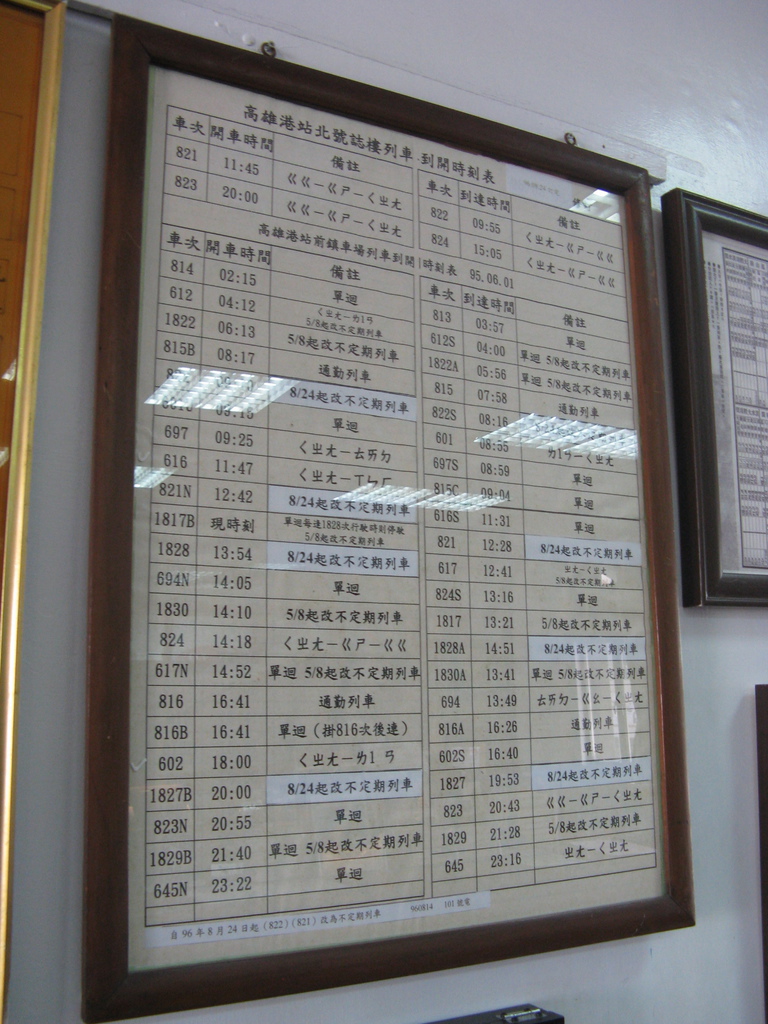 高雄港站北號誌樓列車 到開時刻表
車次 開車時間 備註
821 11:45 ㄍㄍ－ㄍㄕ－ㄑㄓㄤ
823 20:00 ㄍㄍ－ㄍㄕ－ㄑㄓㄤ
車次 到達時間 備註
822 09:55 ㄑㄓㄤ－ㄍㄕ－ㄍㄍ
824 15:05 ㄑㄓㄤ－ㄍㄕ－ㄍㄍ
高雄港站前鎮車場列車到開時刻表 95.06.01
車次 開車時間 備註
814 02:15 單迴
612 04:12 ㄑㄓㄤ－ㄌ1ㄢ 5/8起改不定期列車
1822 06:13 5/8起改不定期列車
815B 08:17 通勤列車
8/24起改不定期列車
09:15 單迴
697 09:25 ㄑㄓㄤ－ㄊㄞㄉ
616 11:47 ㄑㄓㄤ－
821N 12:42 8/24起改不定期列車
1817B 現時刻 單迴每逢1828次行駛時刻停駛 5/8起改不定期列車
1828 13:54 8/24起改不定期列車
694N 14:05 單迴
1830 14:10 5/8起改不定期列車
824 14:18 ㄑㄓㄤ－ㄍㄕ－ㄍㄍ
617N 14:52 單迴 5/8起改不定期列車
816 16:41 通勤列車
816B 16:41 單迴（掛816次後連）
602 18:00 ㄑㄓㄤ－ㄌ1ㄢ
1827B 20:00 8/24起改不定期列車
823N 20:55 單迴
1829B 21:40 單迴 5/8起改不定期列車
645N 23:22 單迴
車次 到達時間 備註
813 03:57 單迴
612S 04:00 單迴 5/8起改不定期列車
1822A 05:56 單迴 5/8起改不定期列車
815 07:58 通勤列車
822S 08:16
601 08:55 ㄌ1ㄢ－ㄑㄓㄤ
697S 08:59 單迴
815C 09:04 單迴
616S 11:31 單迴
821 12:28 8/24起改不定期列車
617 12:41 ㄓㄤ－ㄑㄓㄤ 5/8起改不定期列車
824S 13:16 單迴
1817 13:21 5/8起改不定期列車
1828A 14:51 8/24起改不定期列車
1830A 13:41 單迴 5/8起改不定期列車
694 13:49 ㄊㄞㄉ－ㄍㄠ－ㄑㄓㄤ
816A 16:26 通勤列車
602S 16:40 單迴
1827 19:53 8/24起改不定期列車
823 20:43 ㄍㄍ－ㄍㄕ－ㄑㄓㄤ
1829 21:28 5/8起改不定期列車
645 23:16 ㄓㄤ－ㄑㄓㄤ
自96年8月24日起(822)(821)改為不定期列車 960814 101號電